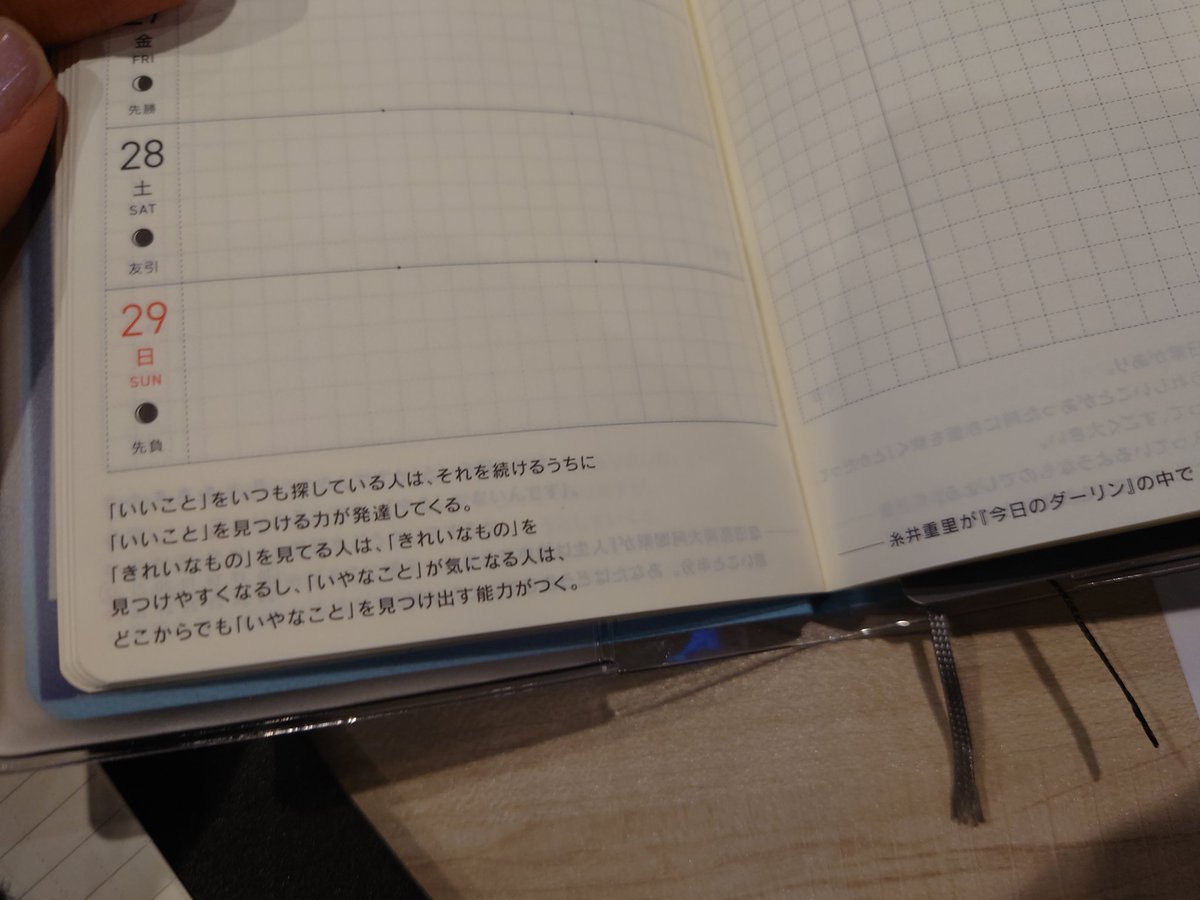 金
FRI
先勝
28
土
SAT
友引
29
日
SUN
先負
「いいこと」をいつも探している人は、それを続けるうちに
「いいこと」を見つける力が発達してくる。
「きれいなもの」を見てる人は、「きれいなもの」を
見つけやすくなるし、「いやなこと」が気になる人は、
どこからでも「いやなこと」を見つけ出す能力がつく。
── 糸井重里が『今日のダーリン』の中で